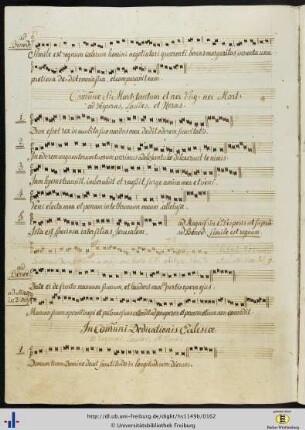 ad Bened.
Simile est regnum cœlorum homini negotiatori quærenti bonas margaritas inventa una
pretiosa dedit omnia sua, et comparavit eam.
Comune S. Mart. tantum et nec Virg. nec Mart.
ad Vesperas, Laudes, et Horas.
1. Dum esset rex in accubitu suo nardus mea dedit odorem suavitatis.
2. In odorem unguentorum tuorum currimus adolescentulæ dilexerunt te nimis.
3. Jam hyems transiit, imber abiit et recessit surge amica mea et veni.
4. Veni electa mea et ponam in te thronum meum alleluja.
5. Ista est speciosa inter filias Jerusalem.
ad Magnif.
ad Bened. Simile est regnum
Date ei de fructu manuum suarum, et laudent eam in portis opera ejus.
Manum suam aperuit inopi et palmas suas extendit ad pauperem et panem otiosa non comedit.
In Comuni Dedicationis Ecclesiæ
1. Domum tuam Domine decet sanctitudo in longitudinem dierum.
http://dl.ub.uni-freiburg.de/diglit/hs1149b/0162
© Universitätsbibliothek Freiburg